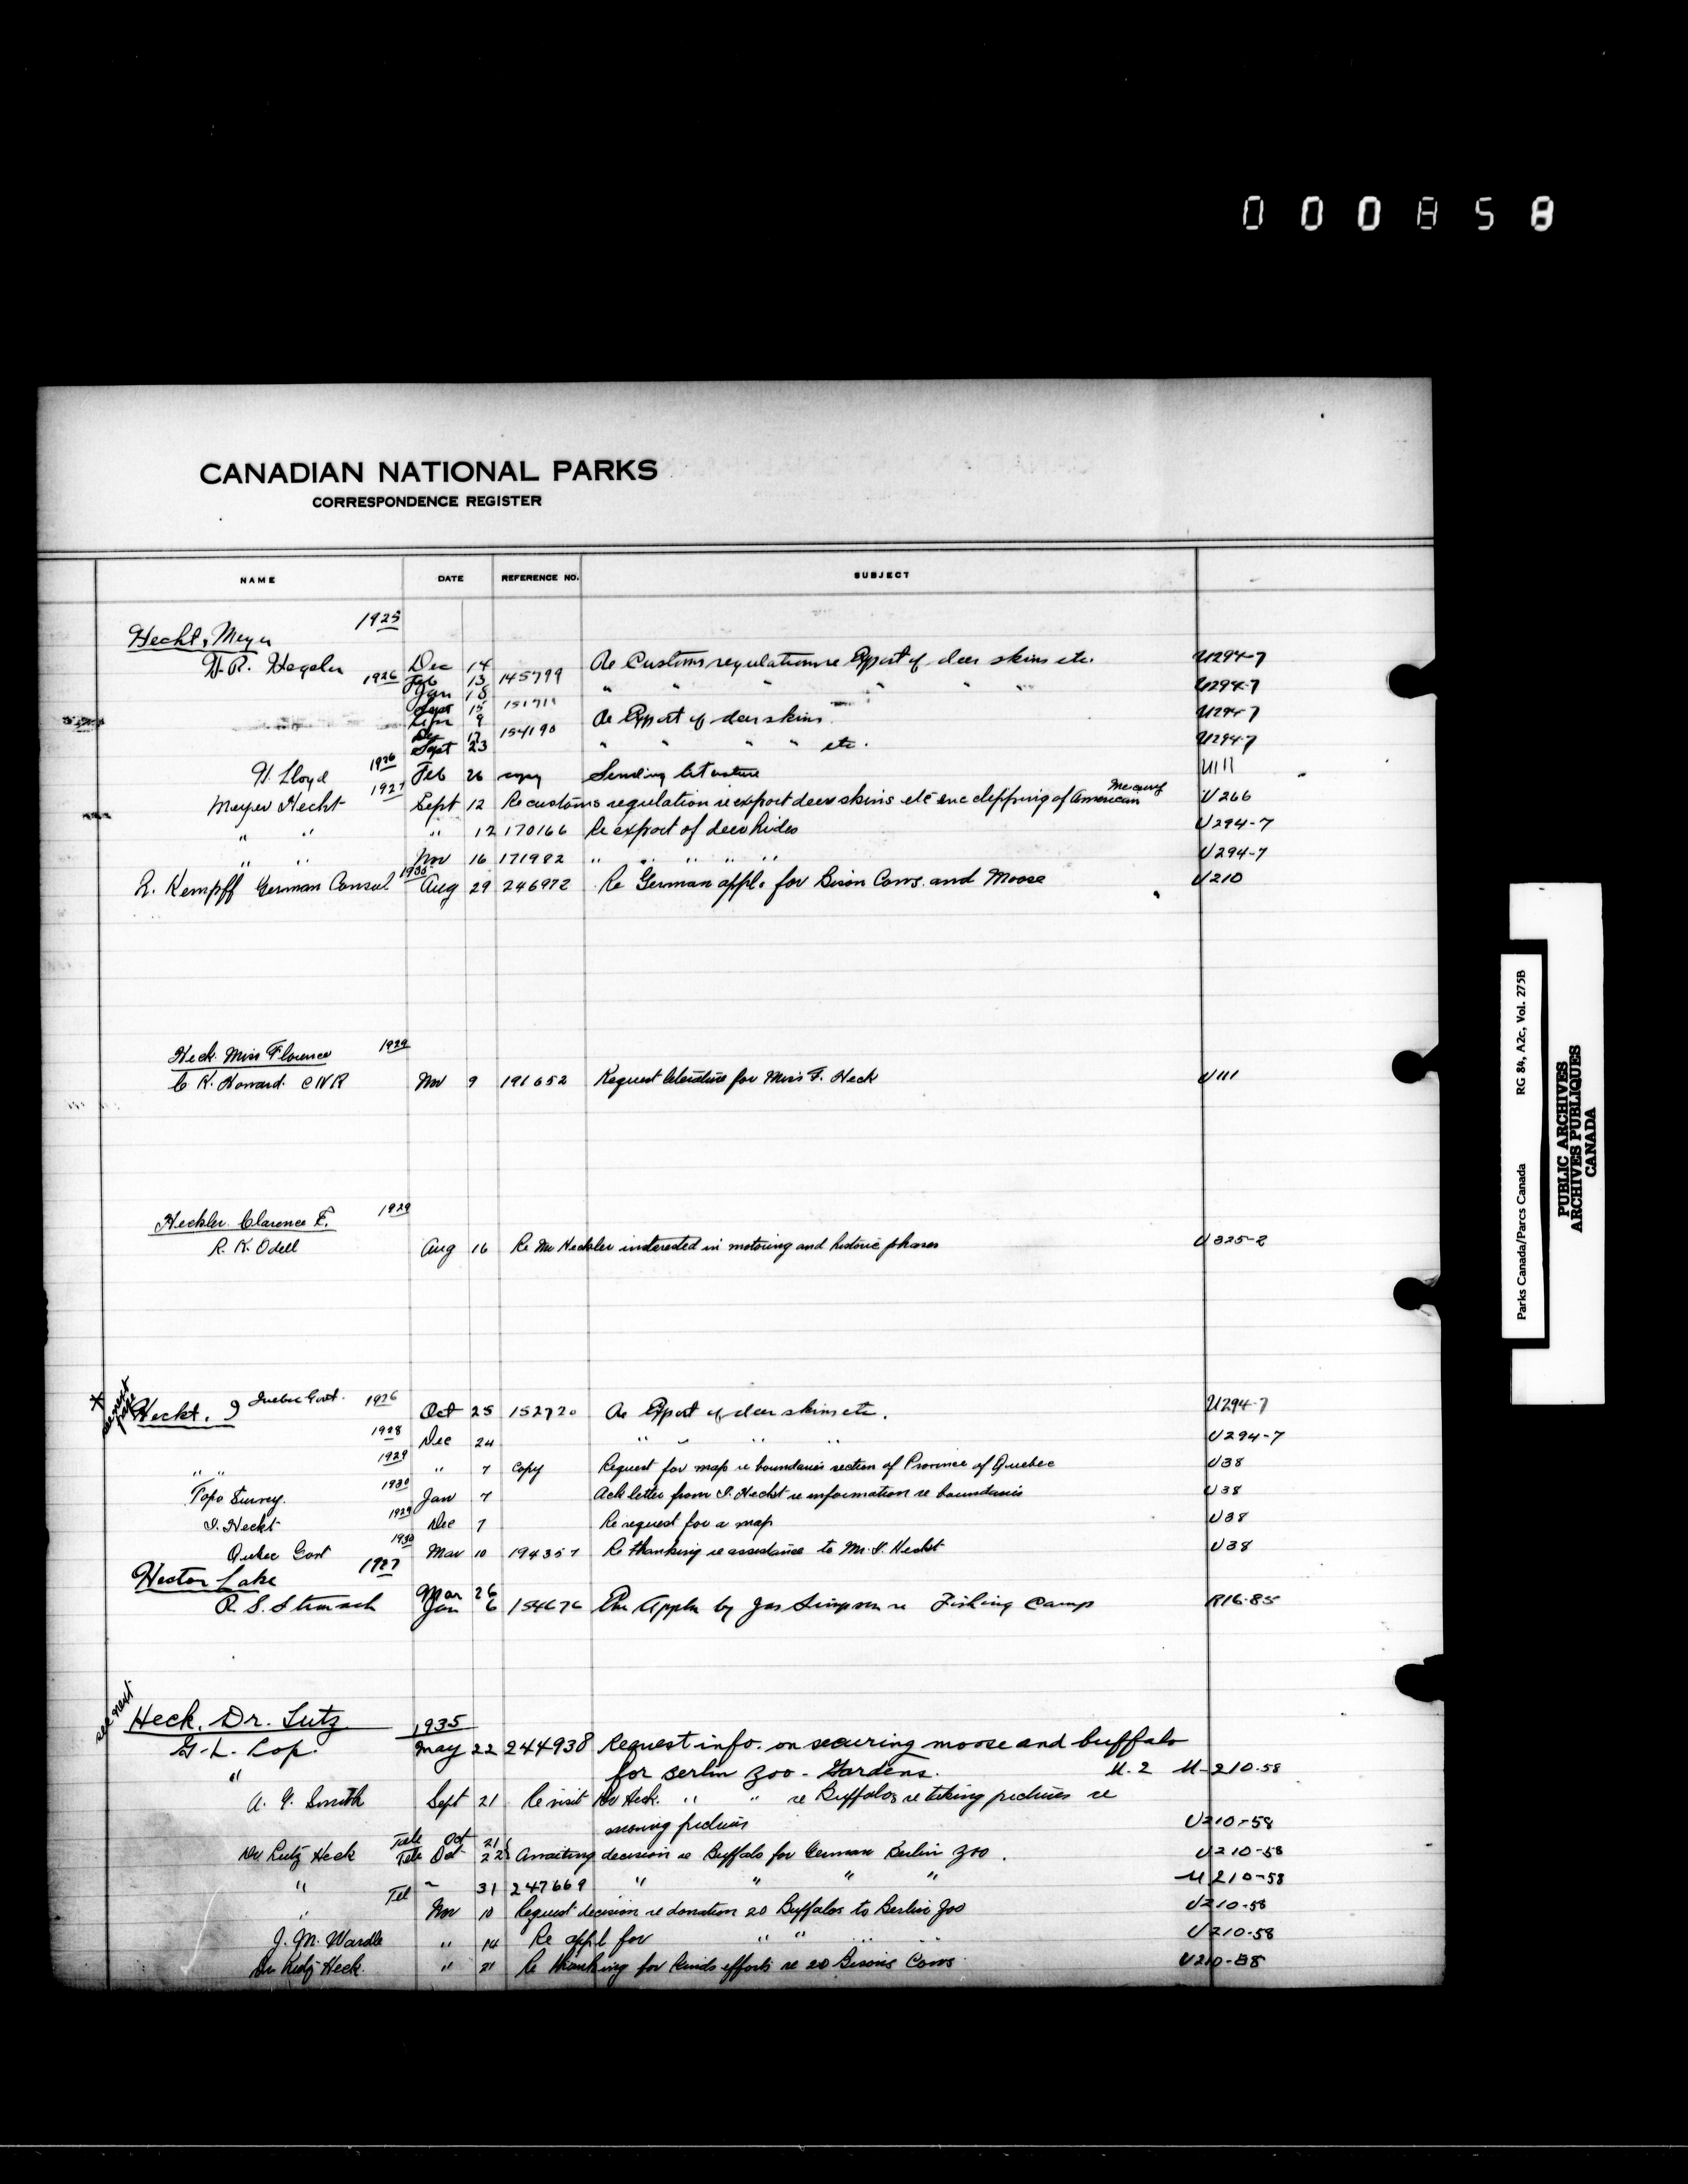 000858
CANADIAN NATIONAL PARKS
CORRESPONDENCE REGISTER
NAME DATE REFERENCE NO. SUBJECT
1925
Hecht, Meyer
Dec 14 Re Customs regulations re Export of deer skins etc. U294-7
1926 Feb 13 145799 " " " " " " U294-7
Jan 18
Sept 15 151711 Re Export of deer skins U294-7
9
17 154190
Sept 23 " " " " etc. U294-7
1926
H. Lloyd Feb 26 copy Sending literature U111
1927
Meyer Hecht Sept 12 Re customs regulation re export deer skins etc enc clipping of American Mercury U266
" " " 12 170166 Re export of deer hides U294-7
" " Nov 16 171982 " " " " " U294-7
1935
R. Kempff German Consul Aug 29 246972 Re German appl. for Bison Cows. and Moose U210
Heck. Miss Florence 1929
C. K. Howard. CNR Nov 9 191652 Request literature for Miss F. Heck U111
Heckler. Clarence E. 1929
R. K. Odell Aug 16 Re Mr Heckler interested in motoring and historic phases U325-2
* see next page
Heckt. I Quebec Govt. 1926 Oct 25 152720 Re Export of deer skins etc. U294-7
1928 Dec 24 " " " " U294-7
" " 1929 " 7 Copy Request for map re boundaries section of Province of Quebec U38
Topo Survey. 1930 Jan 7 Ack letter from I. Hecht re information re boundaries U38
I. Heckt 1929 Dec 7 Re request for a map U38
Quebec Govt 1930 Mar 10 194357 Re thanking re assistance to Mr. I. Hecht U38
Hector Lake 1927
Mar 26
R. S. Stronach Jan 6 154676 Re Appln by Jas Simpson re Fishing Camp R16-85
see next
Heck, Dr. Lutz 1935
May 22 244938 Request info. on securing moose and buffalo
" for Berlin Zoo - Gardens. U.2 U-210-58
A. G. Smith Sept 21 Re visit Dr Heck. " " re Buffalos re taking pictures re
moving pictures U210-58
Tele Oct 21
Dr Lutz Heck Tele Oct 22 Awaiting decision re Buffalo for German Berlin Zoo. U210-58
" Tel " 31 247669 " " " " U210-58
" Nov 10 Request decision re donation 20 Buffalos to Berlin Zoo U210-58
J. M. Wardle " 14 Re appl for " " " " U210-58
Dr Lutz Heck. " 21 Re thanking for kind efforts re 20 Bisons Cows U210-58
Parks Canada/Parcs Canada RG 84, A2c, Vol. 275B
PUBLIC ARCHIVES
ARCHIVES PUBLIQUES
CANADA